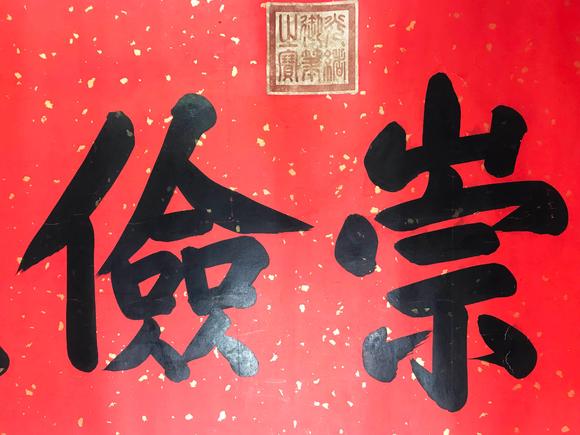 光緒御筆之寶
崇儉